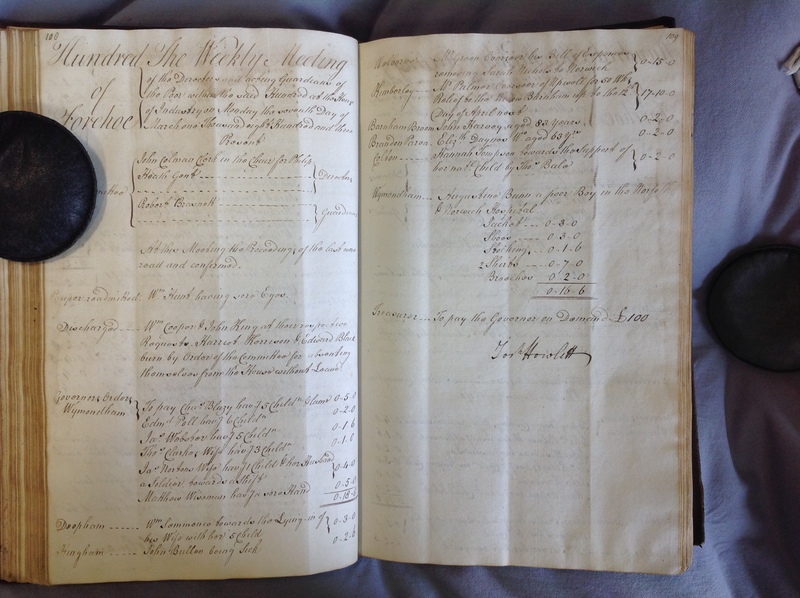 108
Hundred The Weekly Meeting
of
Forehoe
of the Directors and acting Guardians of
the Poor within the said Hundred at the House
of Industry on Monday the seventh Day of
March one Thousand eight Hundred and three
Present
John Colman Clerk in the Chair for Philip
Gent
Directors
Robert
Guardians
At this Meeting the Proceedings of the last were
read and confirmed.
Pauper readmitted Wm Hunt having sore Eyes.
Discharged Wm Cooper & John King at their respective
Requests Harriet Harrison & Edward Black
burn by Order of the Committee for absenting
themselves from the House without Leave
Governors Orders
Wymondham
To pay Chas Blazy havg 5 Childn & lame 0-5-0
Edmd Poll havg 6 Childn 0-2-0
Jas Webster havg 5 Childn 0-1-6
Thos Clarkes Wife havg 3 Childn 0-1-0
Jas Nortons Wife havg 1 Child & her Husband
a Soldier towards a Shift 0-4-0
Matthew Wiseman havg a sore Hand 0-5-0
Deopham Wm Sommonce towards the Lying-in of
his Wife with her 5 Child 0-3-0
Hingham John Bullen being Sick 0-2-6
109
Overseer his Bill of Expences
removing Sarah Nichols to Norwich 0-15-0
Kimberley Mr Palmer Overseer of Norwich for 50 Wks
Relief to the Widow up to the 12th
Day of April next 17-10-0
Barnham Broom John Harvey aged 83 years 0-2-0
Brandon Parva Elizth Daynes Wo aged 63 yrs 0-2-0
Colton Hannah Tompson towards the Support of
her natl Child by Thos 0-2-0
Wymondham Augustine Bunn a poor Boy in the Norfolk
& Norwich Hospital
Jacket 0-3-0
Shoes 0-3-0
Stockings 0-1-6
2 Shirts 0-7-0
Breeches 0-2-0
0-16-6
Treasurer To pay the Governor on Demand £100
Jos. Howlett